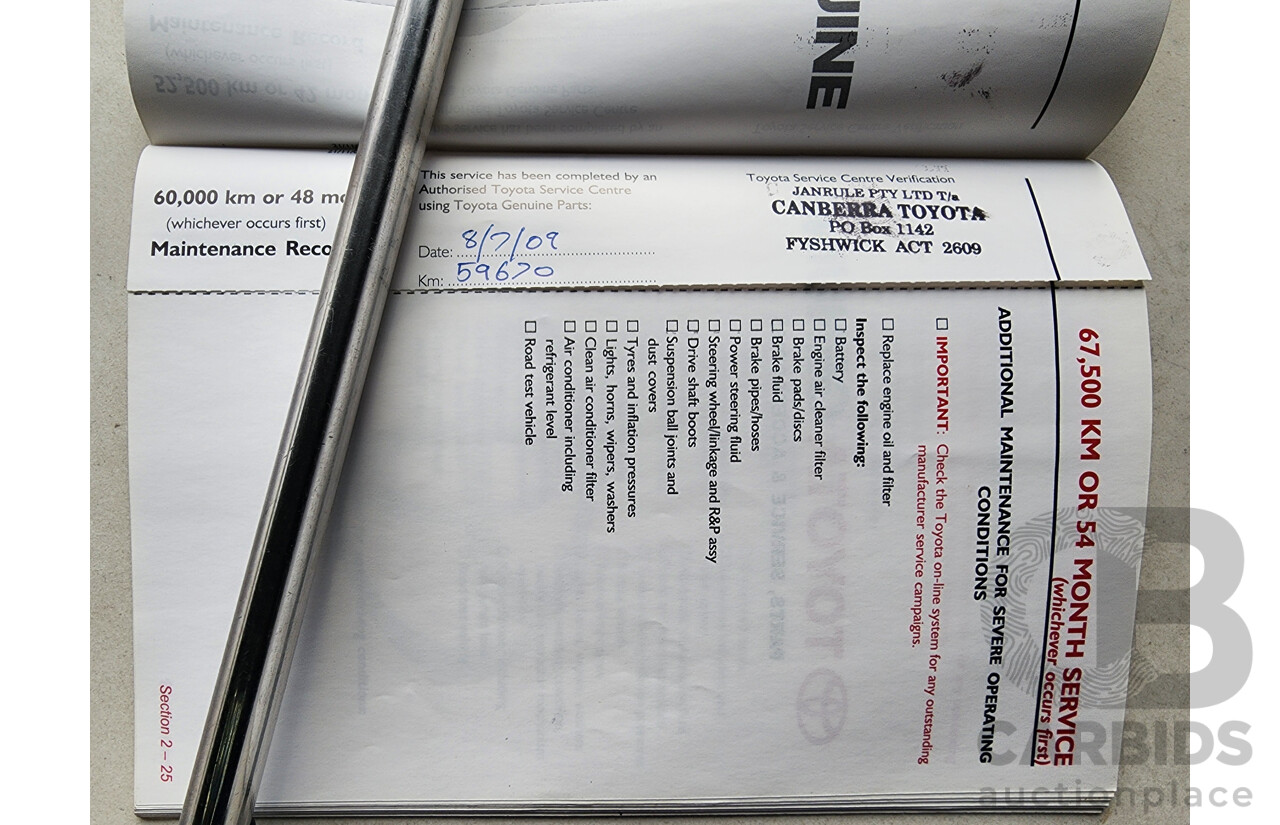 UINE
60,000 km or 48 mo
(whichever occurs first)
Maintenance Reco
This service has been completed by an
Authorised Toyota Service Centre
using Toyota Genuine Parts:
Date: 8/7/09
Km: 59670
Toyota Service Centre Verification
JANRULE PTY LTD T/a
CANBERRA TOYOTA
PO Box 1142
FYSHWICK ACT 2609
67,500 KM OR 54 MONTH SERVICE
(whichever occurs first)
ADDITIONAL MAINTENANCE FOR SEVERE OPERATING
CONDITIONS
IMPORTANT: Check the Toyota on-line system for any outstanding
manufacturer service campaigns.
Replace engine oil and filter
Inspect the following:
Battery
Engine air cleaner filter
Brake pads/discs
Brake fluid
Brake pipes/hoses
Power steering fluid
Steering wheel/linkage and R&P assy
Drive shaft boots
Suspension ball joints and
dust covers
Tyres and inflation pressures
Lights, horns, wipers, washers
Clean air conditioner filter
Air conditioner including
refrigerant level
Road test vehicle
Section 2 – 25
CARBIDS
auctionplace